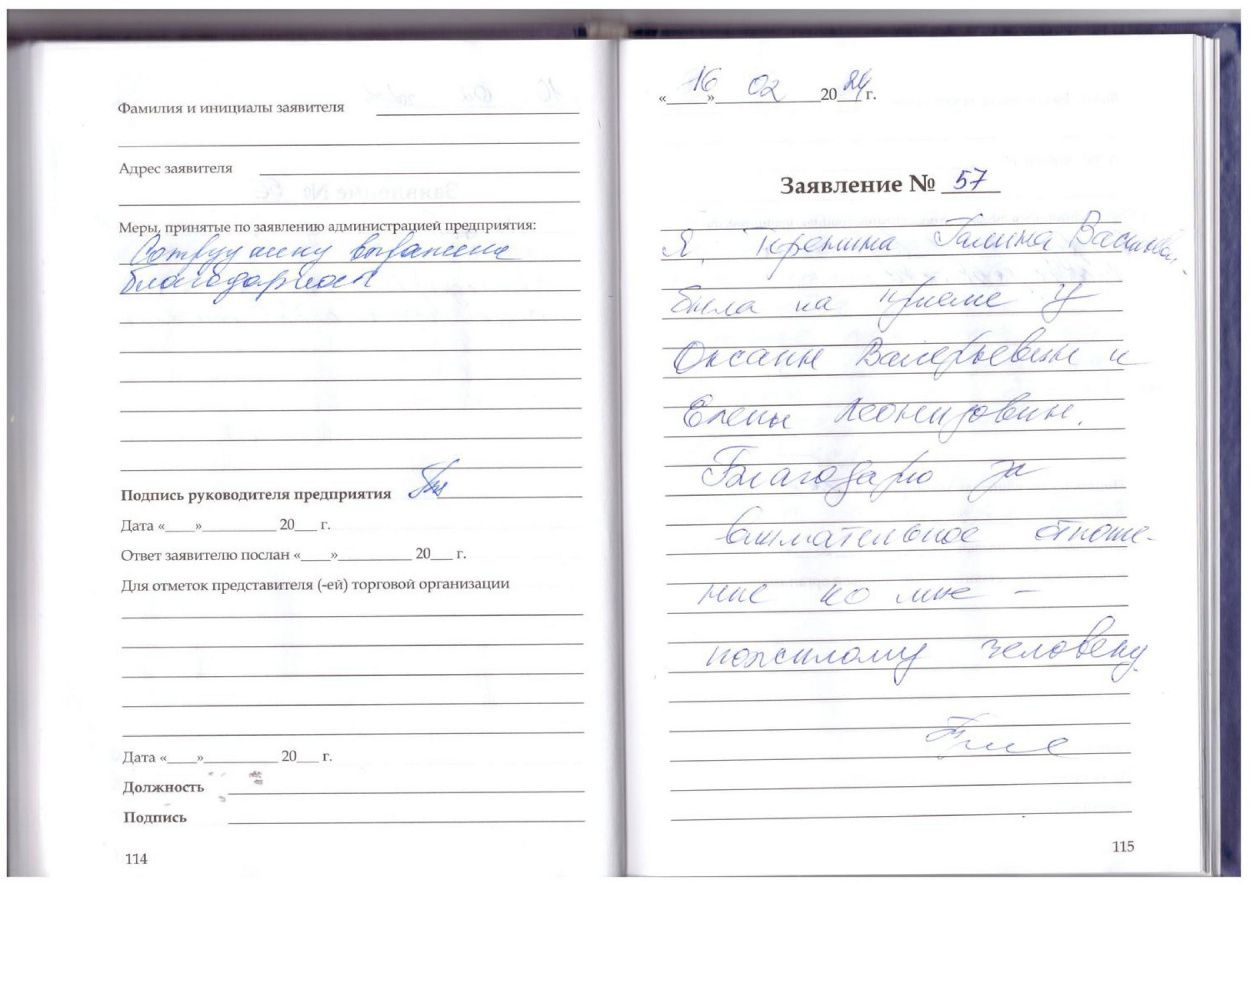 Фамилия и инициалы заявителя
Адрес заявителя
Меры, принятые по заявлению администрацией предприятия:
Сотруднику выражена
благодарность
Подпись руководителя предприятия
Дата «____»__________ 20___ г.
Ответ заявителю послан «____»__________ 20___ г.
Для отметок представителя (-ей) торговой организации
Дата «____»__________ 20___ г.
Должность
Подпись
114
«16» 02 2024 г.
Заявление № 57
Я, Галина Василь
была на приеме у
Оксаны Валерьевны и
Елены Леонидовны.
Благодарю за
внимательное отноше-
ние ко мне –
пожилому человеку.
115